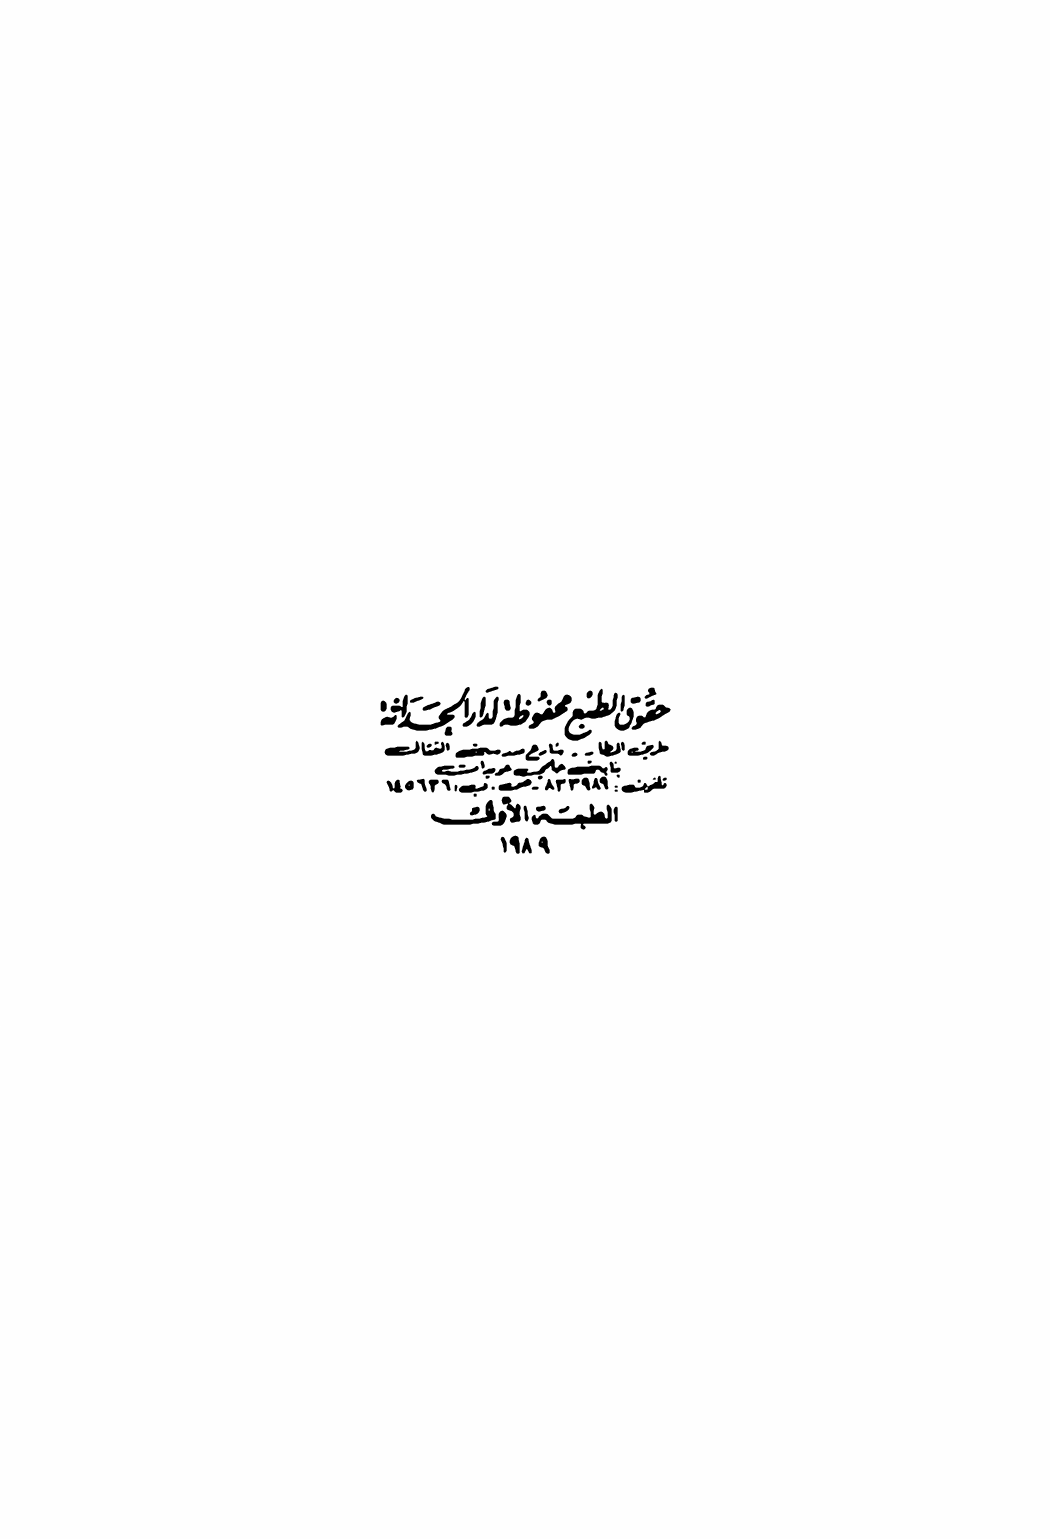 حقوق الطبع محفوظة لدار الحداثة
طريق المطار - شارع مدرسة القتال
بناية حلمي عويدات
تلفون : ٨٣٣٩٨٩ - ص . ب : ١٤٥٦٣٦
الطبعة الأولى
١٩٨٩